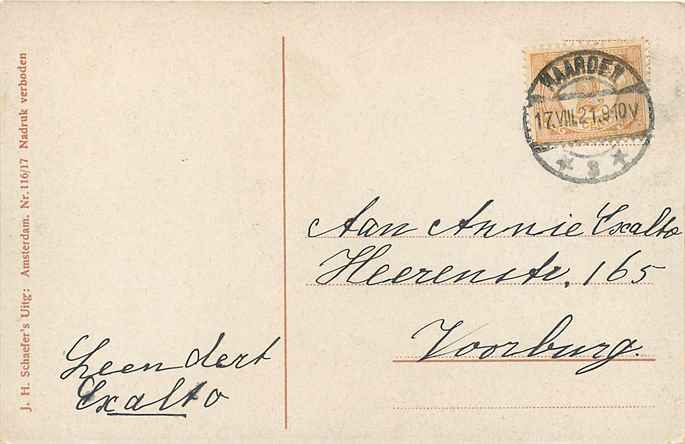 J. H. Schaefer's Uitg: Amsterdam. Nr. 116/17 Nadruk verboden
NAARDEN
17.VIII.21.9-10V
3
Aan Annie Exalto
Heerenstr. 165
Voorburg.
Leendert
Exalto